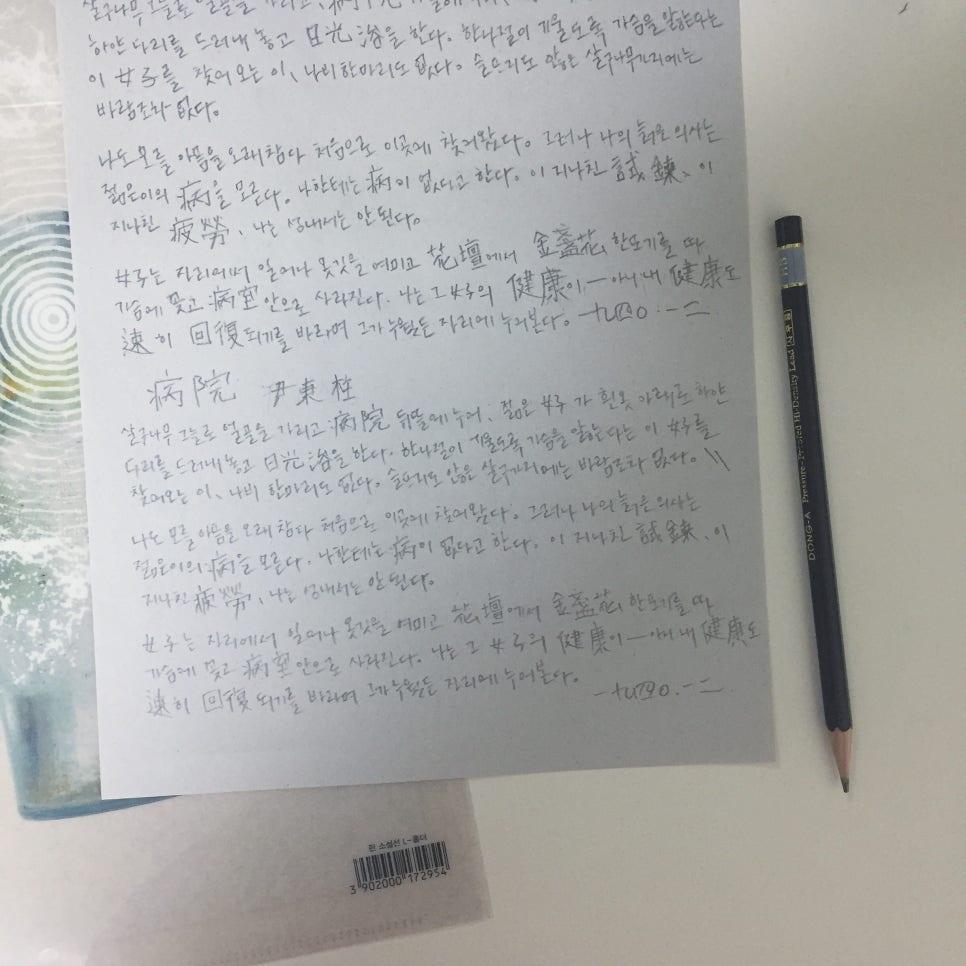 살구나무 그늘로 얼골을 가리고, 病院
하얀 다리를 드러내 놓고 日光浴을 한다. 한나절이 기울도록 가슴을 앓는다는
이 女子를 찾어 오는 이, 나비 한마리도 없다. 슬프지도 않은 살구나무가지에는
바람조차 없다.
나도 모를 아픔을 오래 참다 처음으로 이곳에 찾어왔다. 그러나 나의 늙은 의사는
젊은이의 病을 모른다. 나한테는 病이 없다고 한다. 이 지나친 試鍊, 이
지나친 疲勞, 나는 성내서는 안된다.
女子는 자리에서 일어나 옷깃을 여미고 花壇에서 金盞花 한포기를 따
가슴에 꽂고 病室 안으로 사라진다. 나는 그 女子의 健康이 — 아니 내 健康도
速히 回復되기를 바라며 그가 누웠든 자리에 누어본다.
病院 尹東柱
살구나무 그늘로 얼골을 가리고 病院 뒤뜰에 누어, 젊은 女子가 흰옷 아래로 하얀
다리를 드러내 놓고 日光浴을 한다. 한나절이 기울도록 가슴을 앓는다는 이 女子를
찾어오는 이, 나비 한마리도 없다. 슬프지도 않은 살구가지에는 바람조차 없다. \\
나도 모를 아픔을 오래 참다 처음으로 이곳에 찾어왔다. 그러나 나의 늙은 의사는
젊은이의 病을 모른다. 나한테는 病이 없다고 한다. 이 지나친 試鍊, 이
지나친 疲勞, 나는 성내서는 안된다.
女子는 자리에서 일어나 옷깃을 여미고 花壇에서 金盞花 한포기를 따
가슴에 꽂고 病室 안으로 사라진다. 나는 그 女子의 健康이 — 아니 내 健康도
速히 回復되기를 바라며 그가 누웠든 자리에 누어본다.
DONG-A Pressure-Proofed Hi-Density Lead 사무용
펀 소설선 L-홀더
3 902000 172954